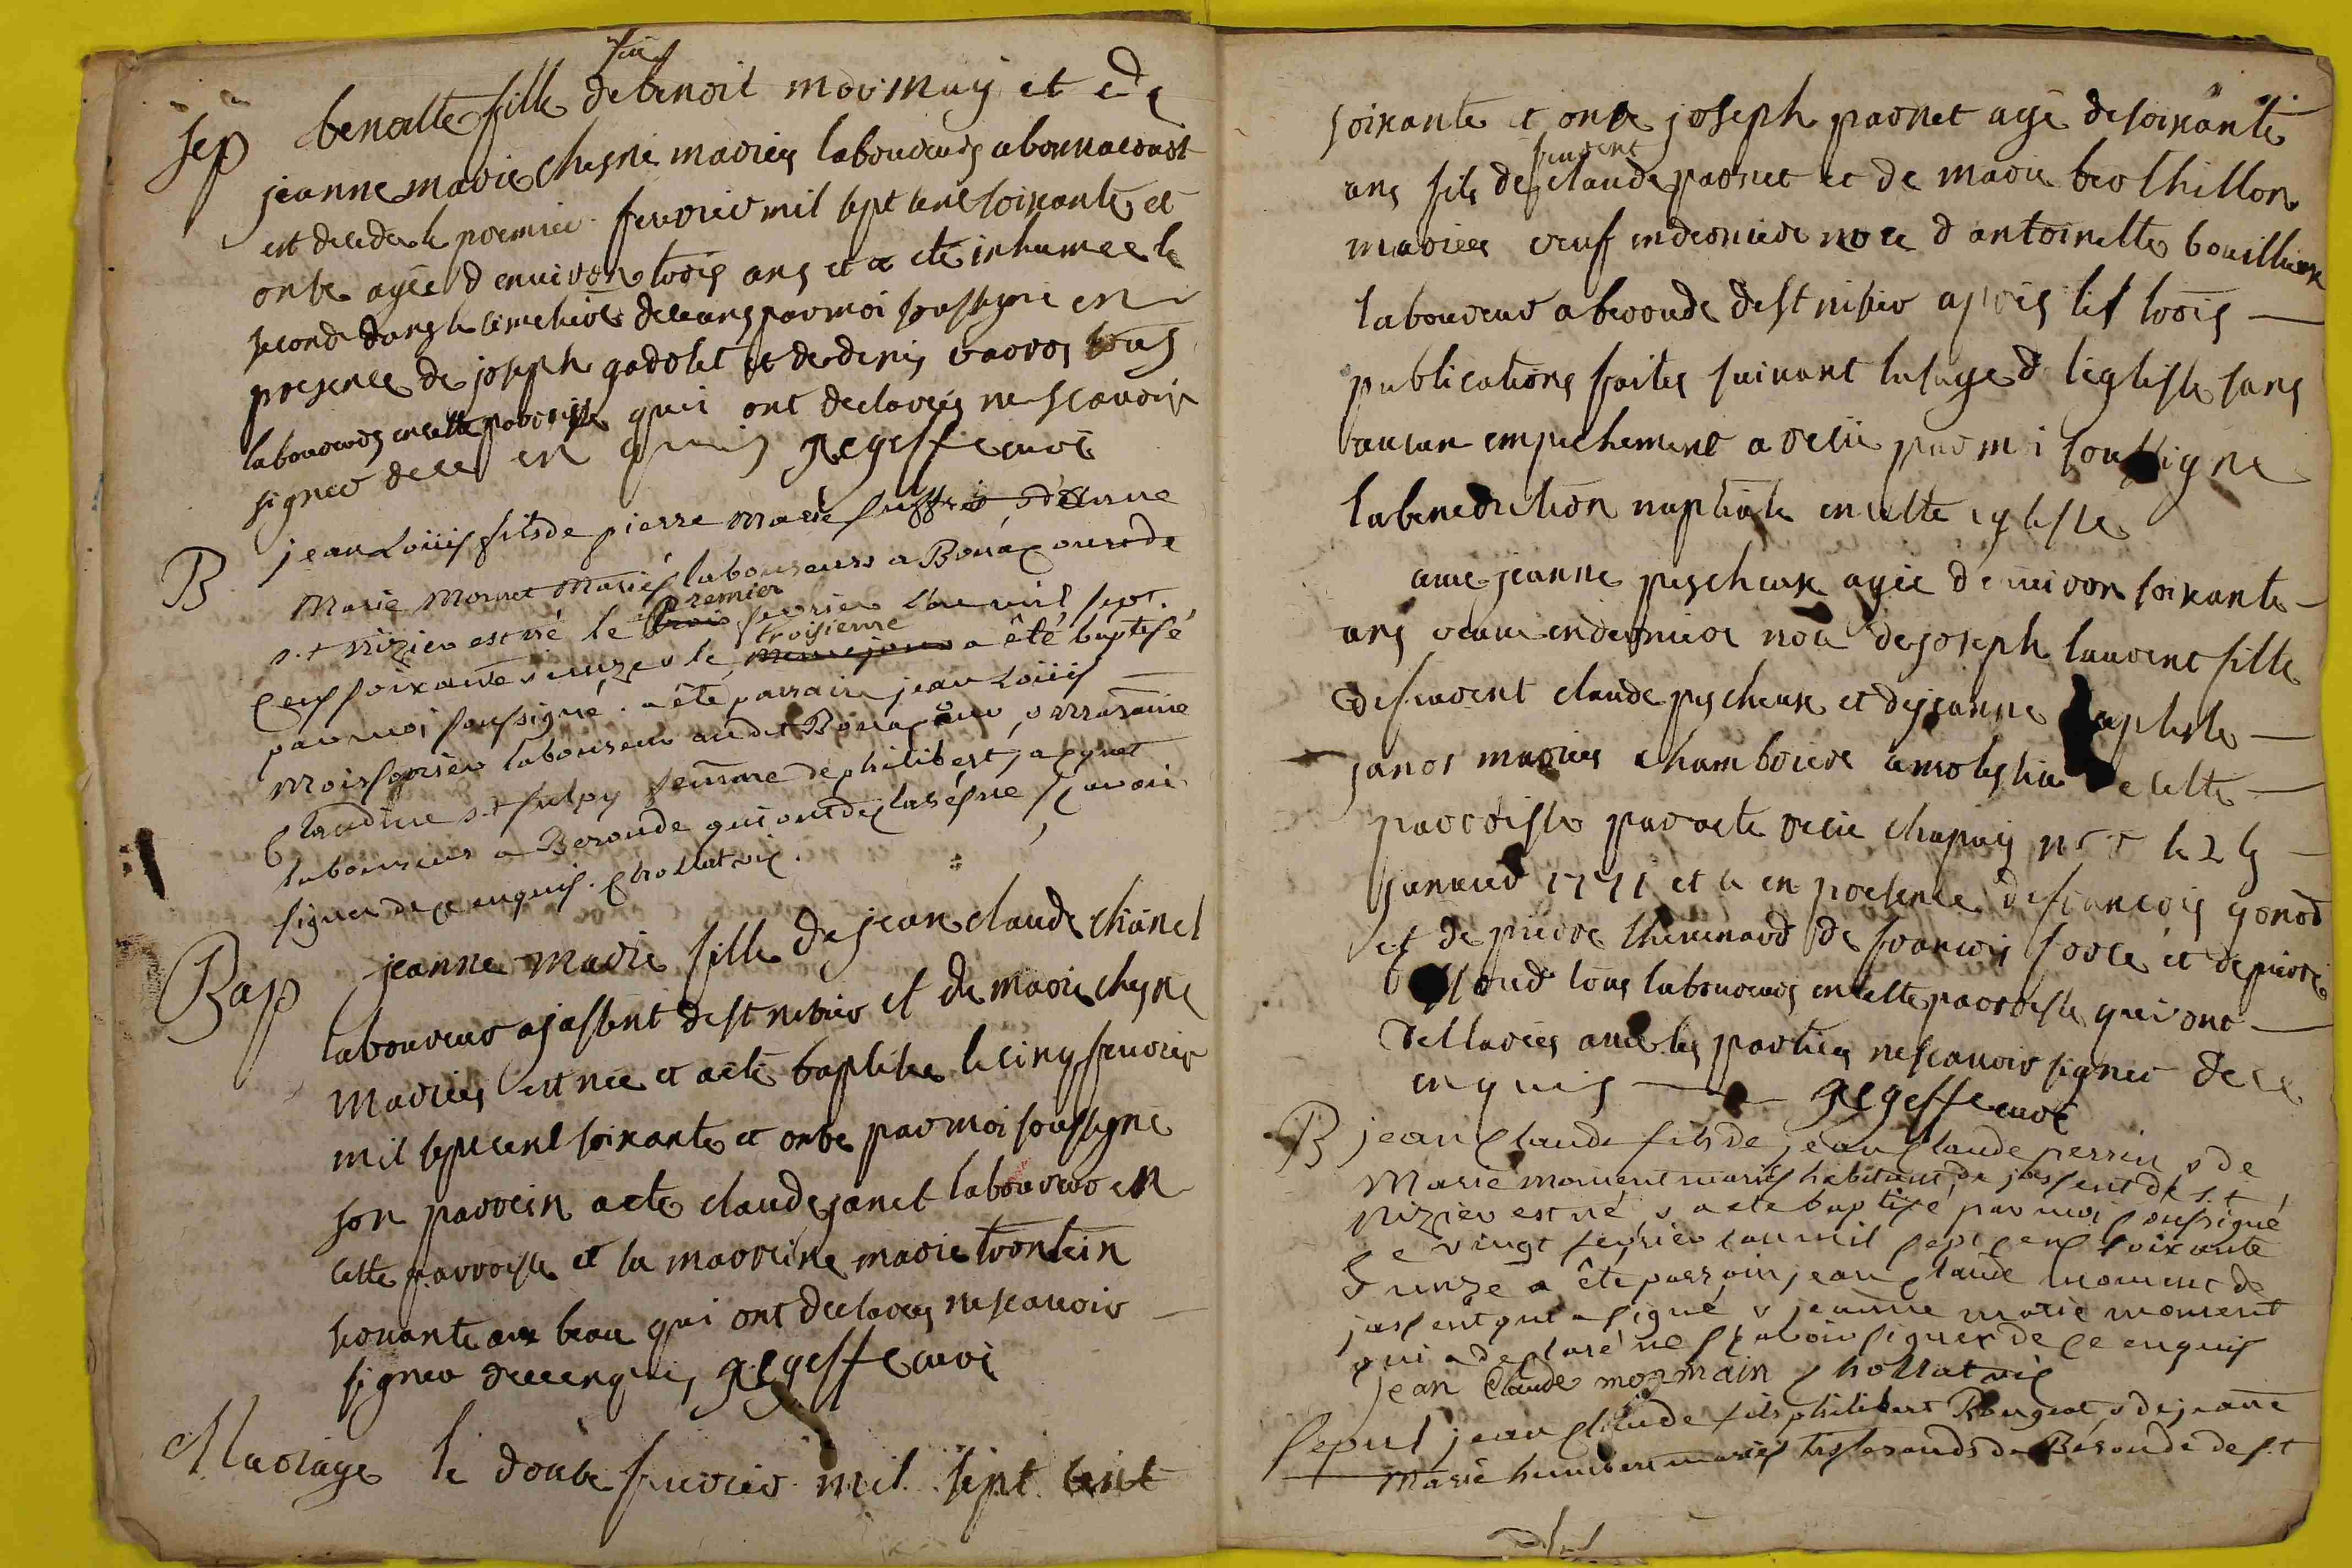 feu
sep benoitte fille de benoit mormay et de
jeanne marie chesne mariés laboureurs a bonnacourt
est decedée le premier fevrier mil sept cent soixante et
onze agée d environ trois ans et a eté inhumee le
second dans le cimetiere deceans par moi soussigné en
presence de joseph gadolet et de denis varos tous
laboureurs en cette parroisse qui ont declarés ne scavoir
signer de ce enquis gegeffe curé
B jean Loüis fils de pierre Marie d'Anne
Marie Mornet Mariés laboureurs a Bonacour de
s.t Nizier est né le trois premier fevrier l'an mil sept
cens soixante & unze & le même jour troisieme a êté baptisé
par moi soussigné. a êté parrain jean Loüis
laboureur audit Bonacour & marraine
Claudine s.t sulpy femme de philibert jacquet
laboureur a Beronde qui ont declaré ne sçavoir
signer de ce enquis. chollat vic.
Bap jeanne marie fille de jean claude chanel
laboureur a jassent de st nizier et de marie chesne
mariés est nee et a eté baptisée le cinq fevrier
mil sept cent soixante et onze par moi soussigné
son parrein a eté claude janet laboureur en
cette parroisse et la marreine marie trontein
servante aux beau qui ont declarés ne scavoir
signer de ce enquis gegeffe curé
Mariage le douze fevrier mil sept cent
soixante et onze joseph parnet agé de soixante
ans fils de feurent claude parnet et de marie brothillon
mariées veuf en derniere noce d antoinette bouilloux
laboureur a beronde de st nisier apres les trois
publications faites suivant lusage de leglise sans
aucun empechement a recu par moi soussigné
la benediction nuptiale en cette eglise
avec jeanne pescheux agée d environ soixante
ans veuve en derniere noce de joseph laurent fille
de feurent claude pescheux et de jeanne baptiste
janos mariés chambriere de cette
parroisse par acte recu chapuy nre le 25
janvier 1771 et ce en presence de francois gonod
et de pierre thevenard de francois force et de pierre
tous laboureurs en cette parroisse qui ont
declarés avec les parties ne scavoir signer de ce
enquis gegeffe curé
B jean Claude fils de jean Claude perrin & de
Marie moment mariés habitant de jassent de s.t
Nizier est né & a eté baptisé par moi soussigné
le vingt fevrier l'an mil sept cens soixante
& unze a êté parrain jean Claude moment de
jassent qui a signé & jeanne marie moment
qui a declaré ne sçavoir signer de ce enquis
jean Claude mormain chollat vic
Sepul jean Claude fils philibert Rougeat & de jeanne
Marie humbert mariés tisserands de Beronde de s.t